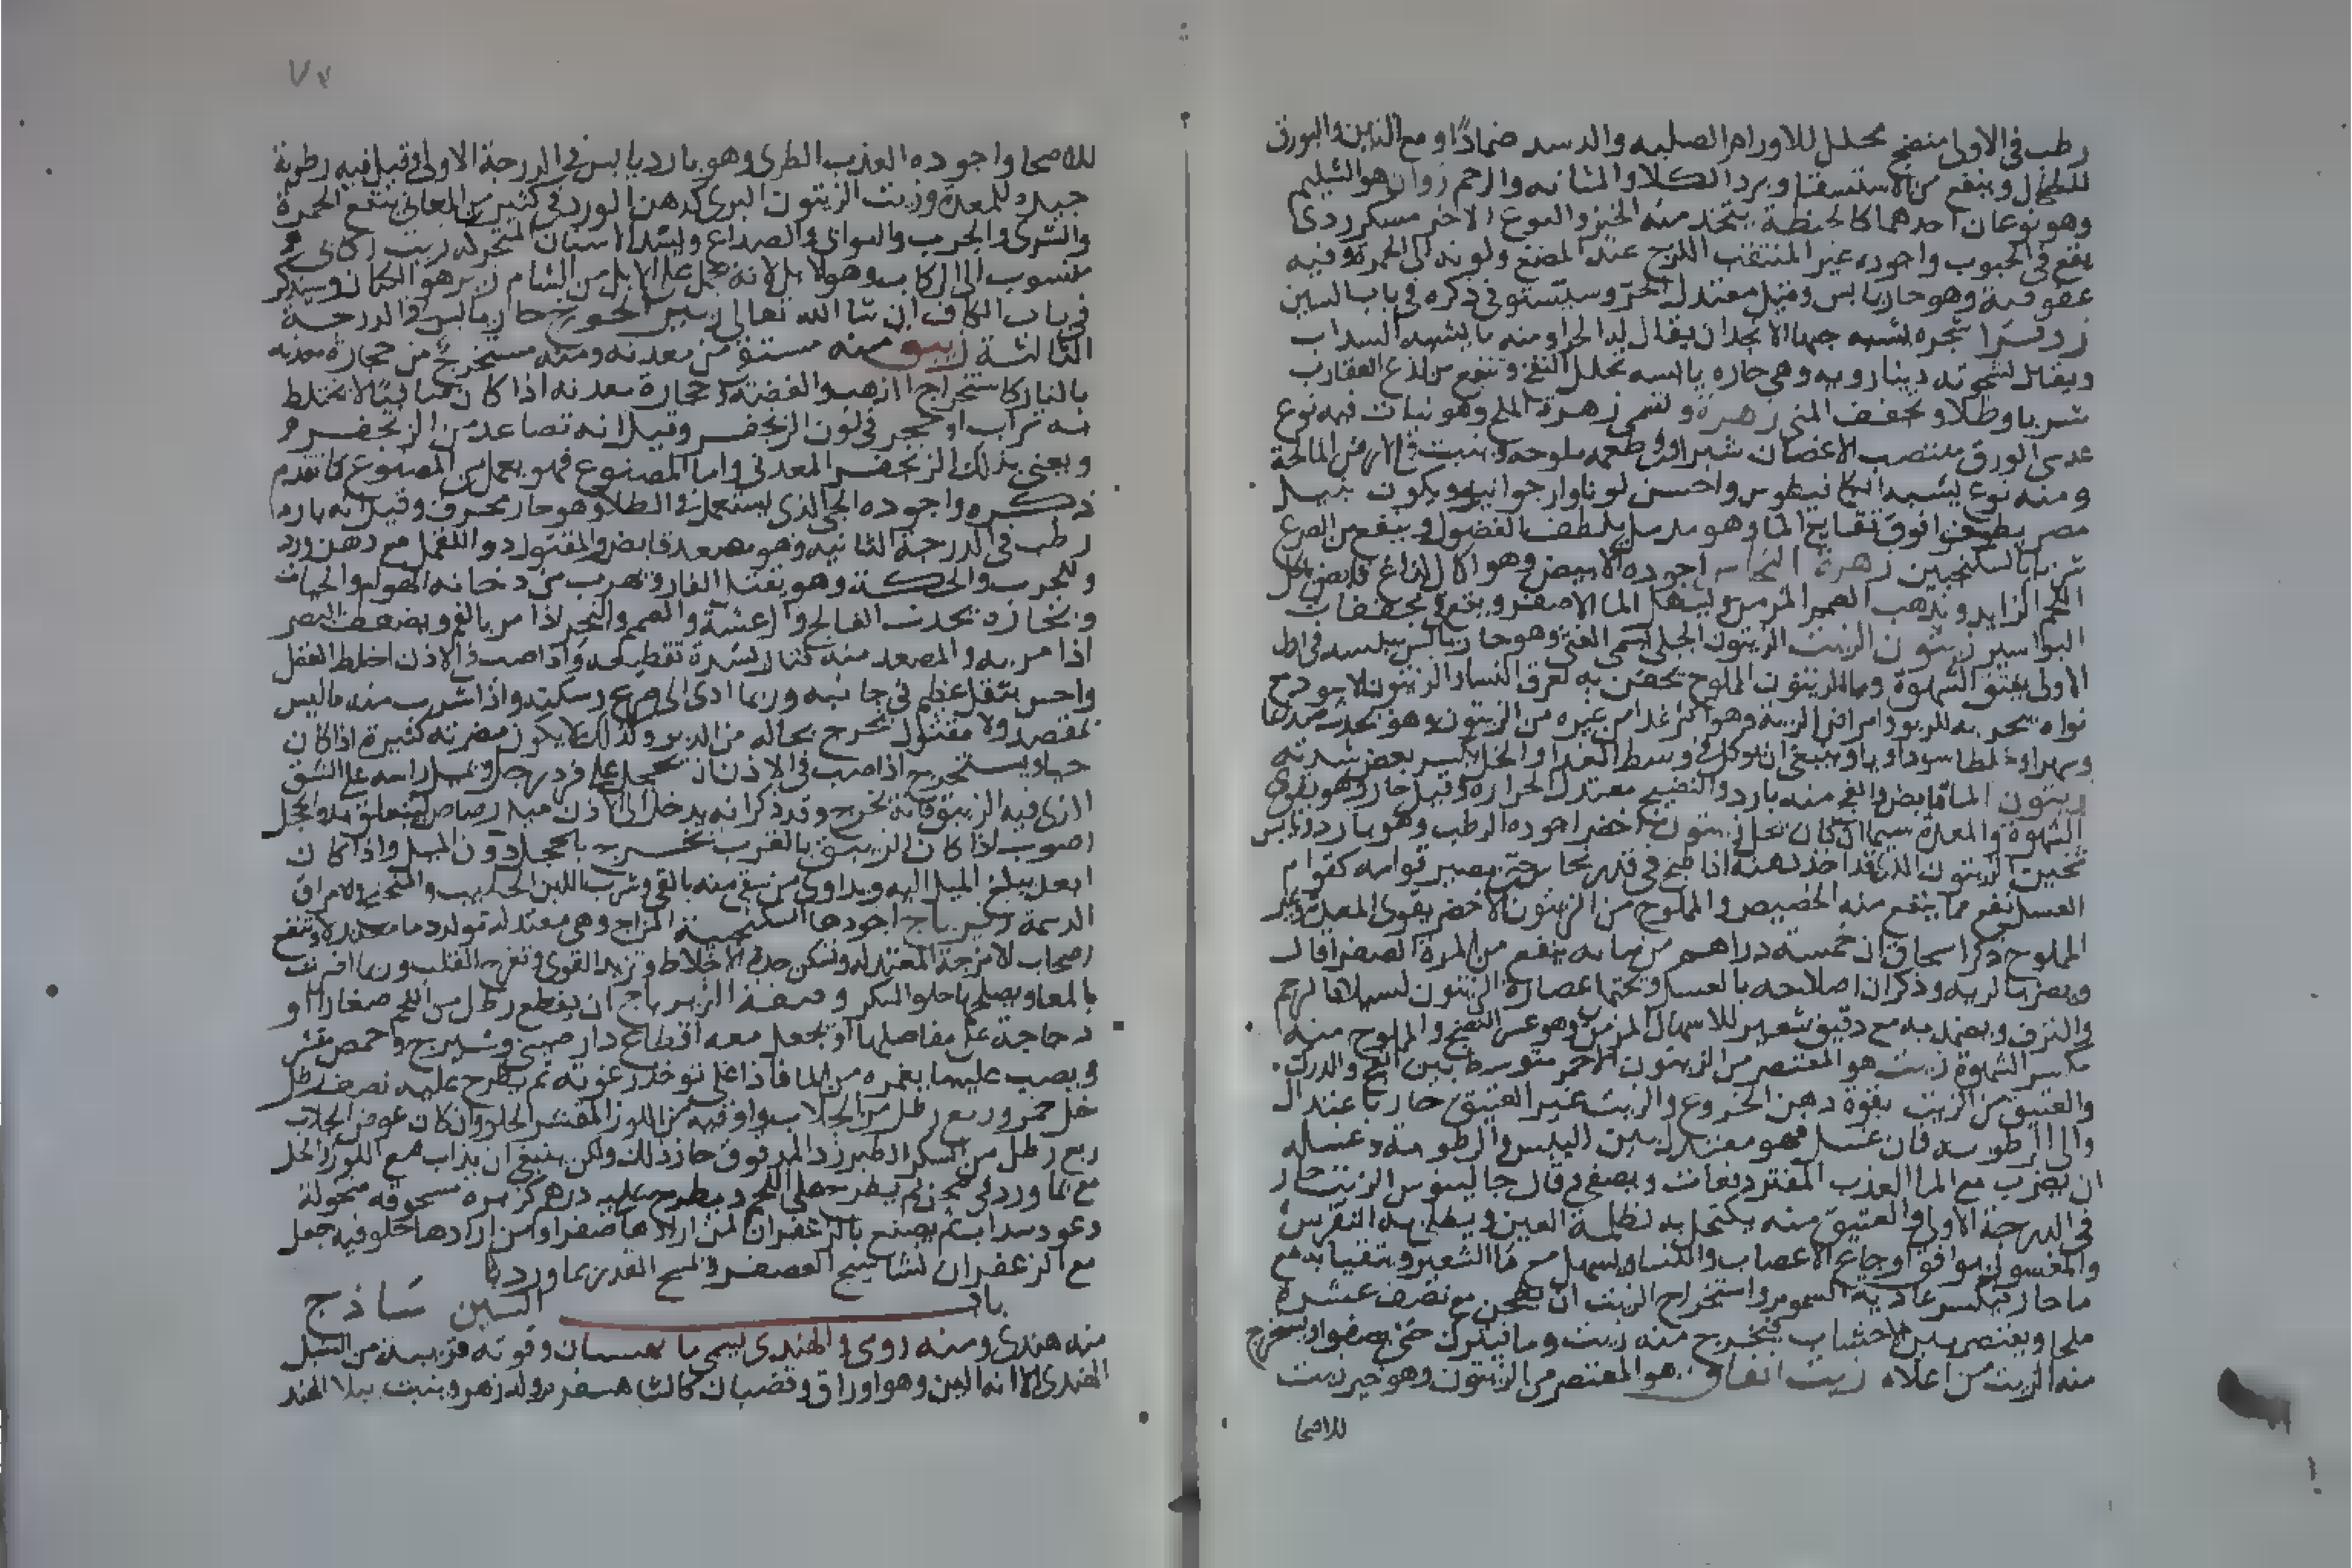 رطب في الاولى منضج محلل للاورام الصلبه والد سد ضمادًا ومع التين والبورق
للطحال وينفع من الاستسقا وبرد الكلا والمثانه والرحم زوان هو الشيلم
وهو نوعان احدهما كالحنطة يتخذ منه الخبز والنوع الاخر مسكر ردى
يقع في الحبوب واجوده غير المنتقب اللزج عند المضغ ولونه الى الحمرة وفيه
عفوصة وهو حار يابس وقيل معتدل الحر وسيستوفي ذكره في باب الشين
شجره تشبه الانجدان يقال له الحزا ومنه ما يشبه السداب
ويقال لشجرته دينارويه وهي حاره يابسه تحلل النفخ وتنفع من لذع العقارب
شربا وطلا وتجفف المني زهرة وتسمى زهرة الملح وهو نبات فيه نوع
عدسي الورق منتصب الاغصان شبرا وفي طعمه ملوحه وينبت في الارض المالحة
ومنه نوع يشبه الكمافيطوس واحسن لونا وارجوانيه ويكون بنيل
مصر يطفوا فوق نقايع الما وهو مدمل يلطف الفضول وينفع من الصرع
شربا بالسكنجبين زهرة النحاس اجوده الابيض وهو اكال لذاع قابض ياكل
اللحم الزايد ويذهب الصمم المزمن ويسهل الما الاصفر ويقع في مجففات
البواسير زيتون الزيت الزيتون الجبلي اسمي الغض وهو حار يابس يبسه في اول
الاولى يفتق الشهوة وما الزيتون المملوح تحقن به لعرق النسا والزيتون الاسود مع
نواه يبخر به للربو وامراض الرية وهو اكثر غدا من غيره من الزيتون وهو يحدث صداعا
وسهرا وخلطا سوداويا وينبغي ان يوكل في وسط الغدا والخل يكسر بعض شدته
زيتون الما قابض والفج منه بارد والنضيج معتدل الحراره وقيل حار وهو يقوى
الشهوة والمعدة سيما ان كان بخل زيتون اخضر اجوده الرطب وهو بارد يابس
ثخين الزيتون الذي قد اخذ دهنه اذا طبخ في قدر نحاس حتى يصير قوامه كقوام
العسل نفع مما ينفع منه الحضيض والمملوح من الزيتون الاخضر يقوى المعدة وغير
المملوح ذكر اسحاق ان خمسة دراهم من مايه ينفع من المرة الصفرا قال
ويضر بالريه وذكر ان اصلاحه بالعسل ويحتمل عصارة الزيتون لسيلان الرحم
والنزف ويضمد به مع دقيق شعير للاسهال المزمن وهو عسر النضج والمملوح منه
يكسر الشهوة زيت هو المعتصر من الزيتون الاحمر متوسط بين الفج والمدرك
والعتيق من الزيت بقوة دهن الخروع والزيت غير العتيق حار باعتدال
والى الرطوبه فان غسل فهو معتدل بين اليبس والرطوبة وغسله
ان يضرب مع الما العذب المفتر دفعات ويصفي وقال جالينوس الزيت حار
في الدرجة الاولى والعتيق منه يكتحل به لظلمة العين ويطلى به النقرس
والمغسول يوافق اوجاع الاعصاب والنسا ويسهل مع ما الشعير ويتقيا به مع
ما حار فيكسر عادية السموم واستخراج الزيت ان يطحن مع نصف عشره
ملحا ويعتصر بين الاخشاب فيخرج منه زيت وما فيترك حتى يصفوا ويخرج
منه الزيت من اعلاه زيت انفاق هو المعتصر من الزيتون وهو خير زيت
للاصحا
٧٢
للاصحا واجوده العذب الطرى وهو بارد يابس في الدرجة الاولى وقيل فيه رطوبة
جيد للمعدة وزيت الزيتون البرى كدهن الورد في كثير من المعاني ينفع الحمرة
والشرى والجرب والبواق والصداع ويشد الاسنان المتحركه زيت ركابى
منسوب الى الركاب وهو الابل لانه يحمل على الابل من الشام زبزهو الكتان وسيذكر
في باب الكاف ان شا الله تعالى حار يابس في الدرجة
الثالثة زيبق منه مستقى من معدنه ومنه مستخرج من حجارة معدنه
بالنار كاستخراج الذهب والفضة وحجارة معدنه اذا كان صافيا لا يختلط
به تراب او حجر في لون الزنجفر وقيل انه تصاعد من الزنجفر
ويعني بذلك الزنجفر المعدني واما المصنوع فهو يعمل من المصنوع كما تقدم
ذكره واجوده الحي الذى يستعمل في الطلا وهو حار محرق وقيل انه بارد
رطب في الدرجة الثانيه وهو مصعد قابض والمقتول دوا للقمل مع دهن ورد
وللجرب والحكة وهو يقتل الفار وتهرب من دخانه الهوام والحيات
وبخاره يحدث الفالج والرعشة والصمم والبخر اذا مر بالفم ويضعف البصر
اذا مر به والمصعد منه قتال لشدة تقطيعه واذا صب في الاذن اختلط العقل
واحس بثقل عظيم في جانبه وربما ادى الى صرع وسكته واذا شرب منه ما ليس
بمصعد ولا مقتول خرج بحاله من الدبر ولذلك لا يكون مضرته كثيرة اذا كان
حيا ويستخرج اذا صب في الاذن ان يحجل على فرد رجل ويميل راسه على الشق
الذى فيه الزيبق فانه يخرج وقد ذكر انه يدخل الى الاذن ميل رصاص ليتعلق به والحجل
اصوب لاذا كان الزيبق بالقرب تخرج بالحجل دون الميل واذا كان
ابعد يبلغ الميل اليه ويداوى من سقي منه بالقي وشرب اللبن الحليب والتحسى والامراق
الدسمة زيرباج اجودها السكنجبينية المزاج وهي معتدله تولد دما معتدلا وتنفع
اصحاب الامزجة المعتدله وتسكن حدة الاخلاط وتزيد القوى وتفرح القلب وربما اضرت
بالمعا ويصلحها حلوا السكر وصفة الزيرباج ان يقطع رطل من اللحم صغارا او
دجاجة على مفاصلها او يجعل معه اقطاع دارصيني وشيرج وحمص مقشر
ويصب عليهما يغمره من الما فاذا غلى توخذ رغوته ثم يطرح عليه نصف رطل
خل خمر وربع رطل من الجلاب واوقيه من اللوز المقشر الحلو وان كان عوض الجلاب
ربع رطل من السكر الطبرزد المدقوق جاز ذلك ولكن ينبغي ان يذاب مع اللوز والخل
مع ما ورد في هجن ثم يطرح على اللحم ويطرح عليه درهم كزبره مسحوقه منخولة
وعود سداب ثم يصبغ بالزعفران لمن ارادها صفرا ومن ارادها خلوقيه جعل
مع الزعفران لشا سبج العصفر وتمسح القدر بماورد
باب السين ساذج
منه هندى ومنه رومى والهندى يسمى وقوته قريبة من السنبل
الهندى الا انه الين وهو اوراق وقضبان كالشاهسفرم وله زهر وينبت ببلاد الهند